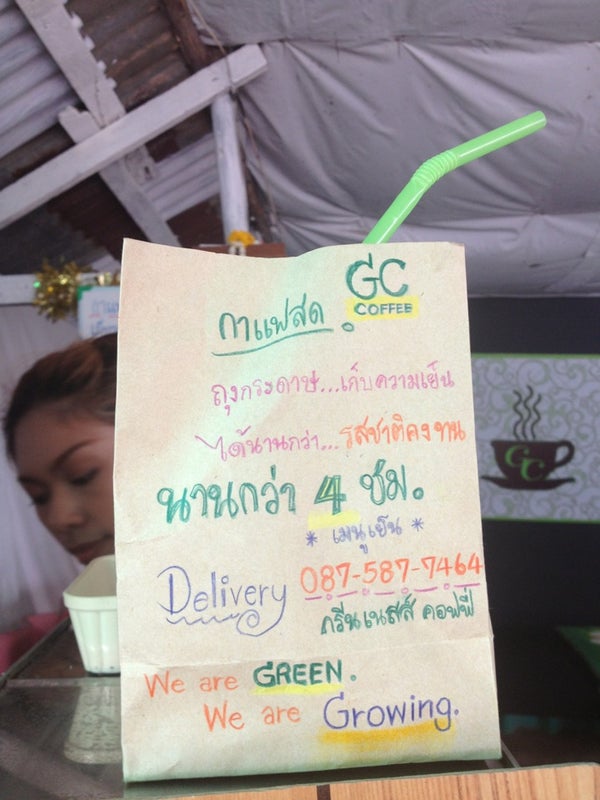 GC
COFFEE
กาแฟสด
ถุงกระดาษ...เก็บความเย็น
ได้นานกว่า...รสชาติคงทน
นานกว่า 4 ชม.
* เมนูเย็น *
Delivery 087-587-7464
กรีนเนสส์ คอฟฟี่
We are GREEN.
We are Growing.
GC